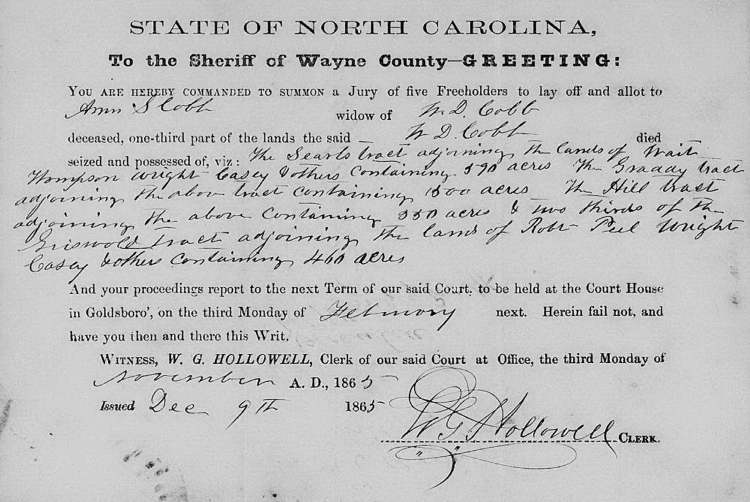 STATE OF NORTH CAROLINA,
To the Sheriff of Wayne County—GREETING:
YOU ARE HEREBY COMMANDED TO SUMMON a Jury of five Freeholders to lay off and allot to
Ann S Cobb widow of W. D. Cobb
deceased, one-third part of the lands the said W D. Cobb died
seized and possessed of, viz: The Searls tract adjoining the lands of Wait
Thompson Wright Casey & others Containing 590 acres The Graddy tract
adjoining the abov tract containing 1500 acres The Hill tract
adjoining the above Containing 350 acres & two thirds of the
Griswold tract adjoining the lands of Robt Peel Wright
Casey & others Containing 460 acres
And your proceedings report to the next Term of our said Court, to be held at the Court House
in Goldsboro', on the third Monday of Februory next. Herein fail not, and
have you then and there this Writ.
WITNESS, W. G. HOLLOWELL, Clerk of our said Court at Office, the third Monday of
November A. D., 1865
Issued Dec 9th 1865
W G Hollowell CLERK.